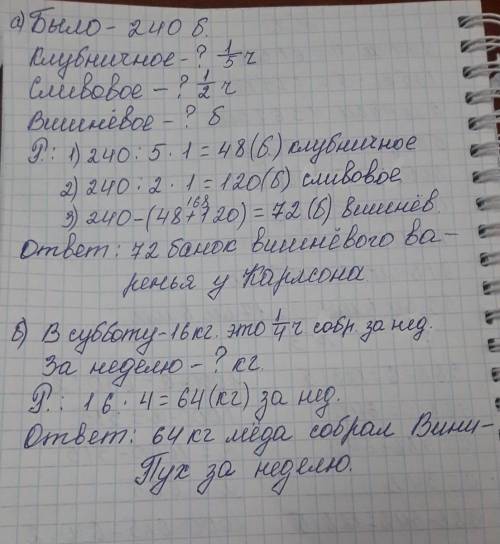 а) Было - 240 б.
Клубничное - ? 1/5 ч
Сливовое - ? 1/2 ч
Вишнёвое - ? б
Р.: 1) 240 : 5 · 1 = 48 (б.) клубничное
2) 240 : 2 · 1 = 120 (б) сливовое
168
3) 240 - (48 + 120) = 72 (б) вишнёв.
Ответ: 72 банок вишнёвого ва-
ренья у Карлсона.
б) В субботу - 16 кг. это 1/4 ч собр. за нед.
За неделю - ? кг.
Р.: 16 · 4 = 64 (кг) за нед.
Ответ: 64 кг мёда собрал Вини-
Пух за неделю.